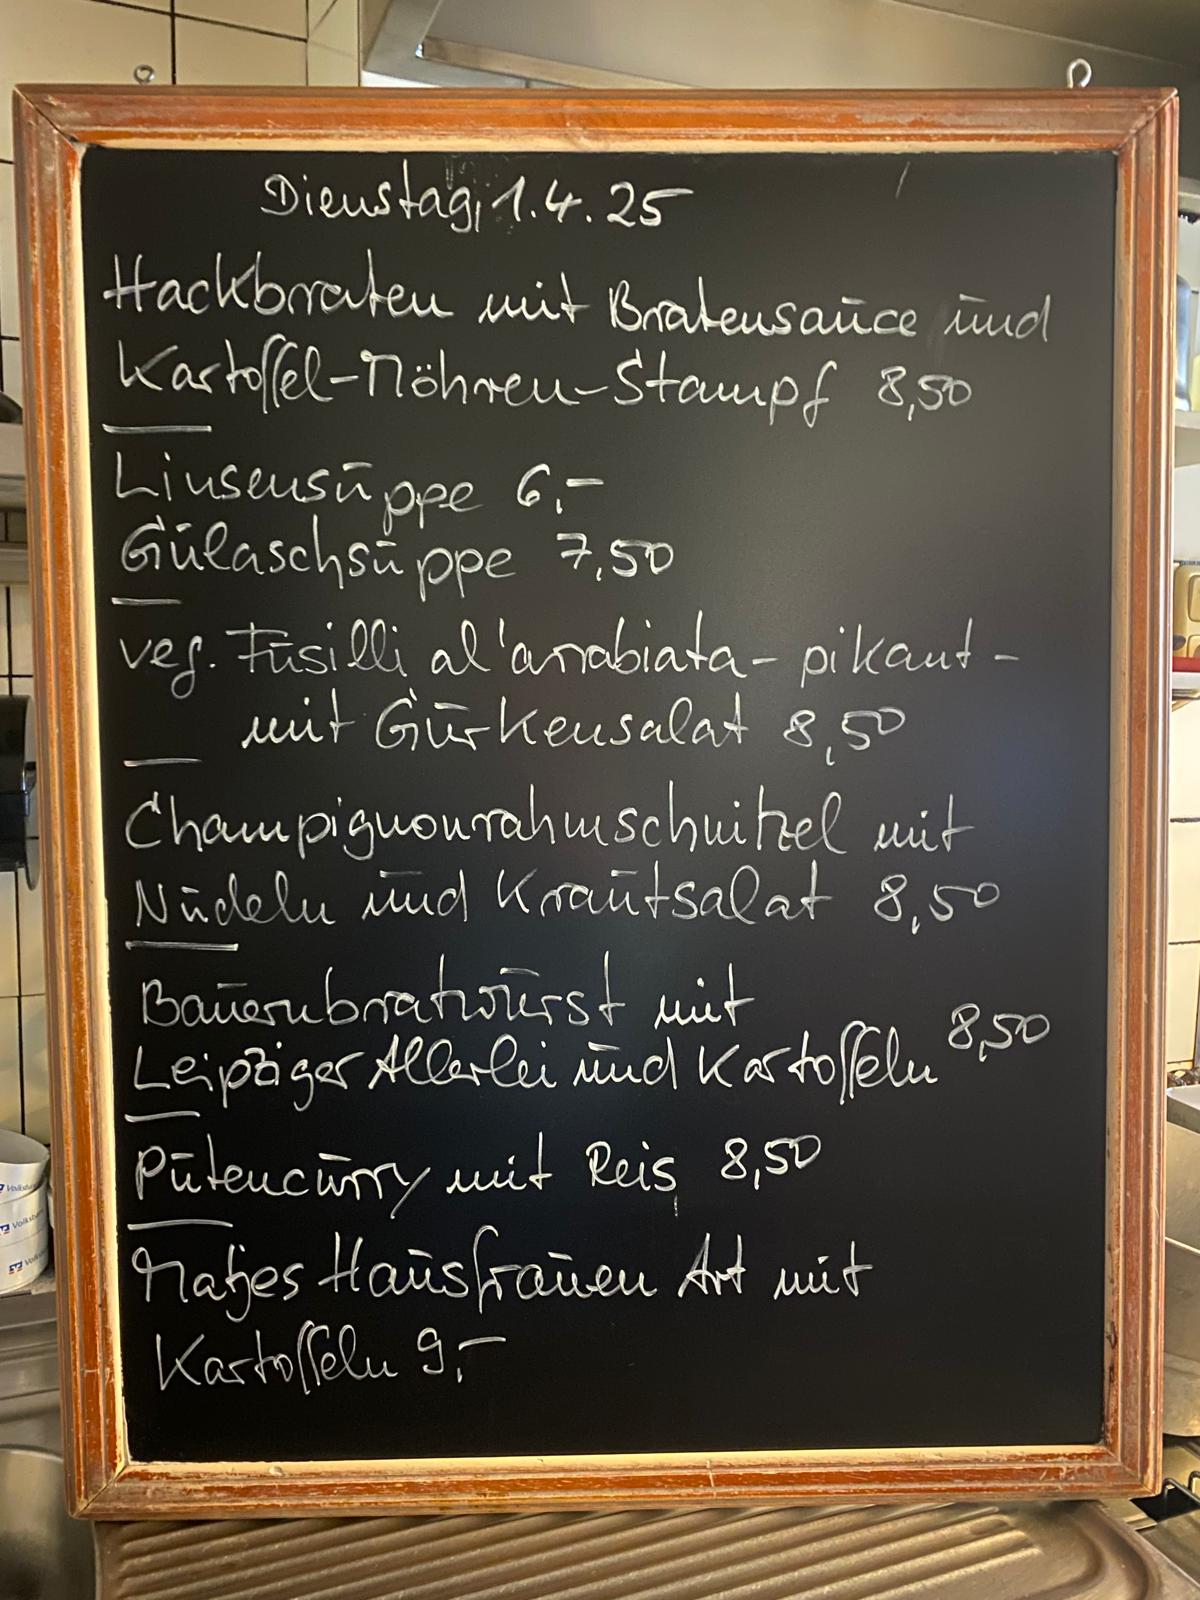 Dienstag, 1.4.25
Hackbraten mit Bratensauce und
Kartoffel-Möhren-Stampf 8,50
Linsensuppe 6,-
Gulaschsuppe 7,50
veg. Fusilli al'arrabiata - pikant -
mit Gurkensalat 8,50
Champignonrahmschnitzel mit
Nudeln und Krautsalat 8,50
Bauernbratwurst mit
Leipziger Allerlei und Kartoffeln 8,50
Putencurry mit Reis 8,50
Matjes Hausfrauen Art mit
Kartoffeln 9,-